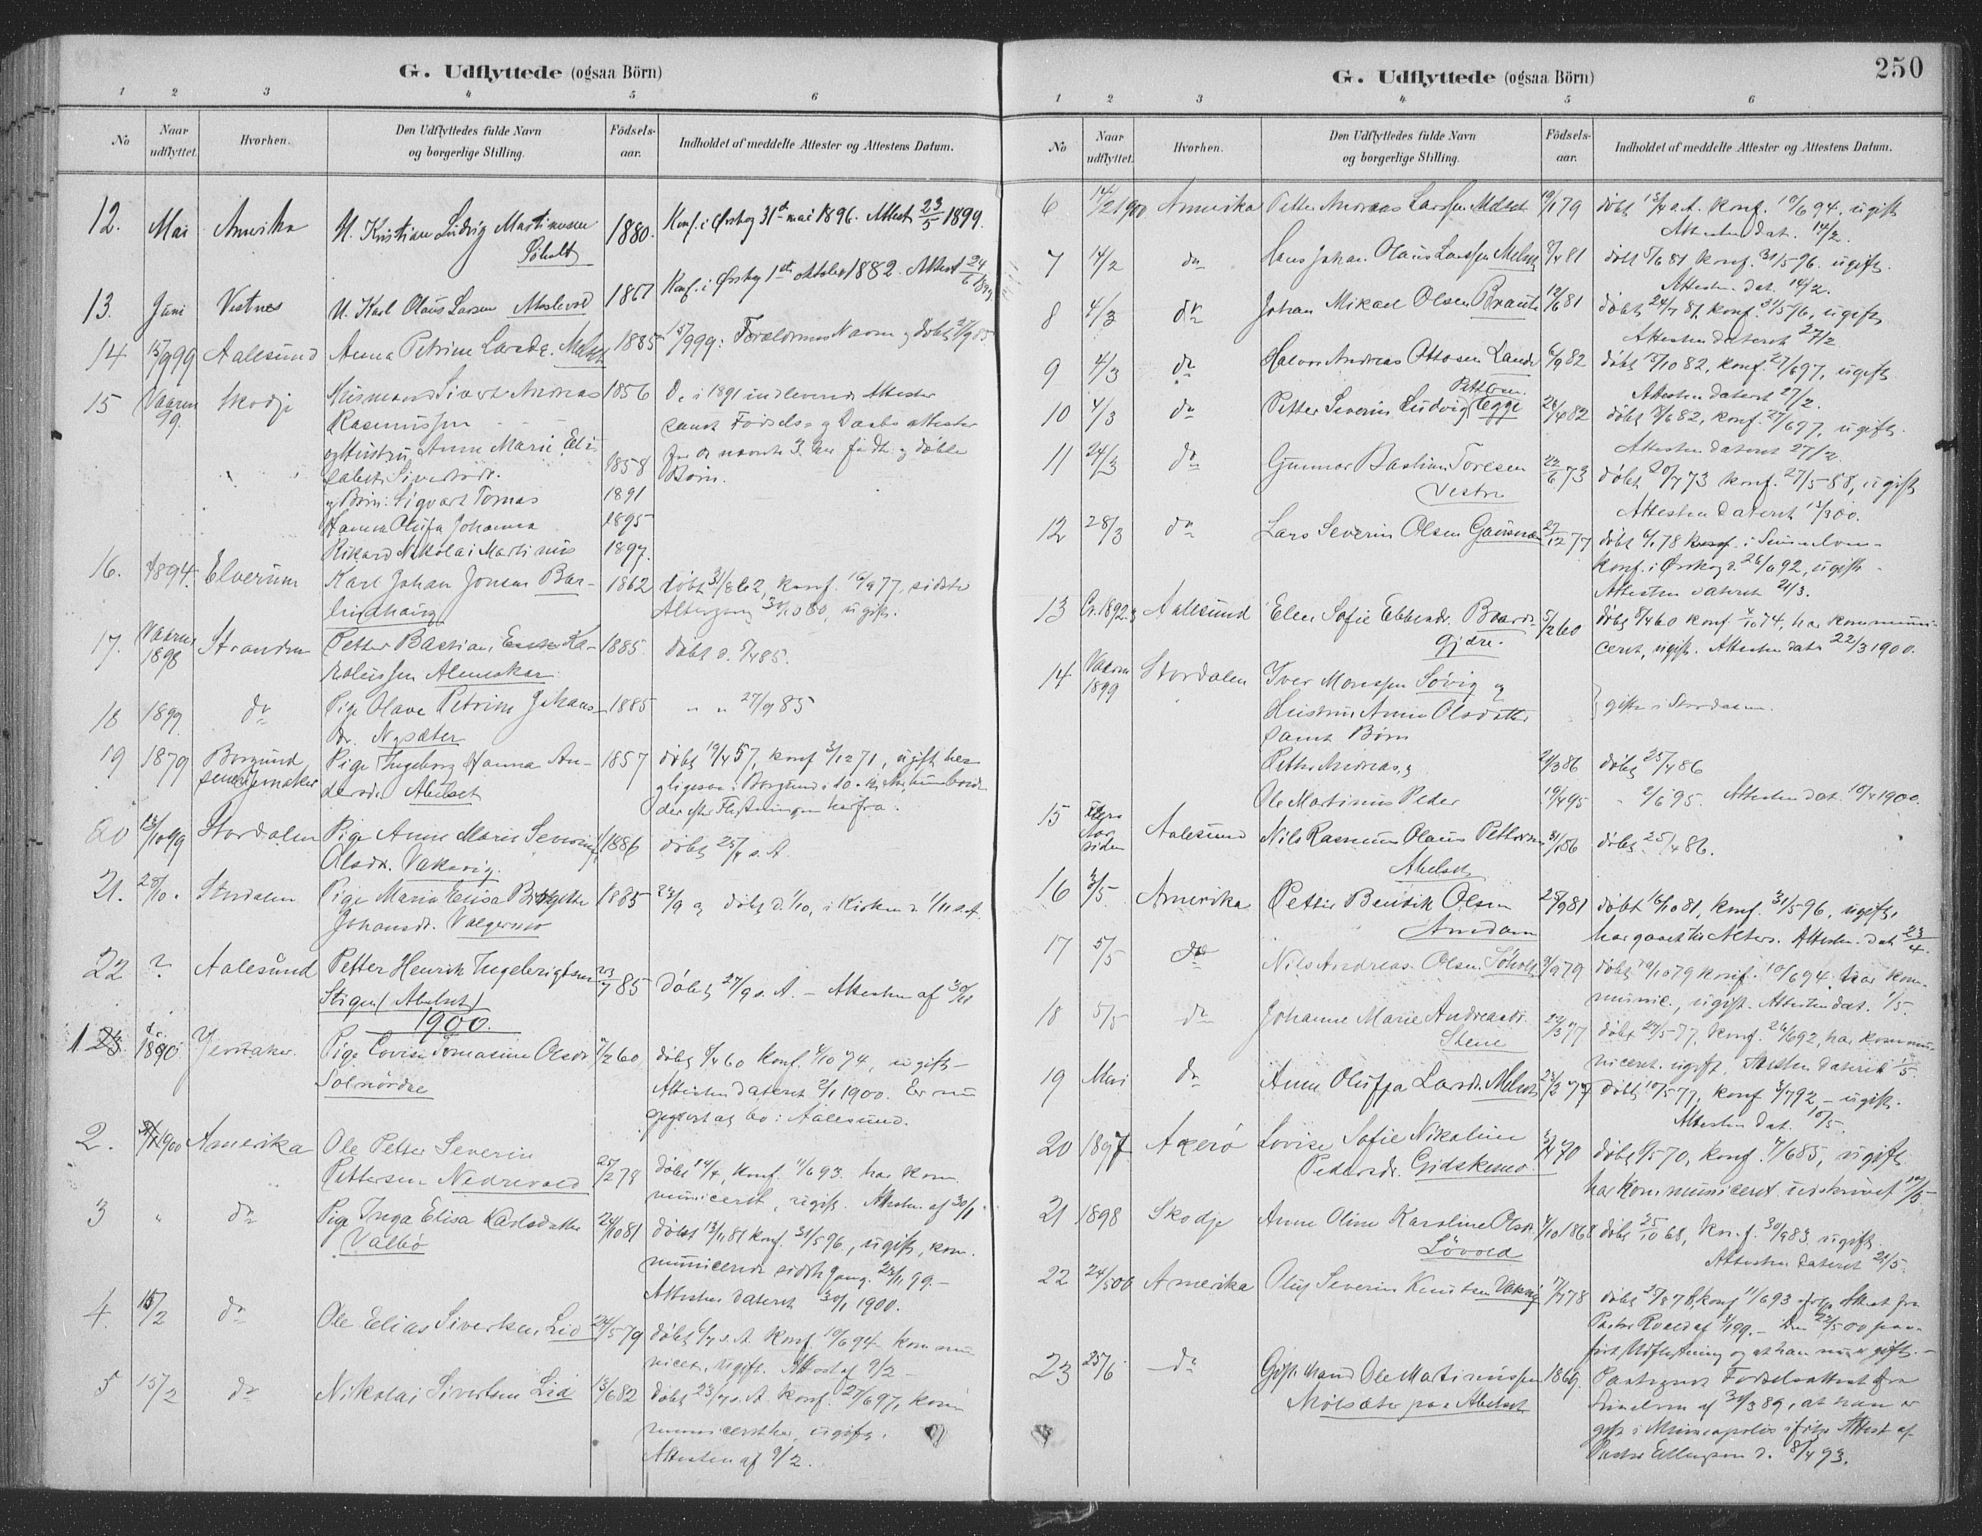 G. Udflyttede (ogsaa Börn)
1 2 3 4 5 6
No
Naar udflyttet.
Hvorhen.
Den Udflyttedes fulde Navn og borgerlige Stilling.
Födsels-aar.
Indholdet af meddelte Attester og Attestens Datum.
12. Mai Amerika U. Kristian Ludvig Martinusen 1880. Konf. i Ørskog 31te mai 1896. Attest 23/5 1899.
Søholt
13. Juni Vestnes U. Karl Olaus Larsen 1867 Konf. i Ørskog 1ste oktober 1882. Attest 24/6 1899
14 15/9 99 Aalesund Anna Petrine Larsdr. Melset 1885 15/9 99: Forældrenes Navn og døbt 27/9 85
15 Vaaren 99. Skodje Husmand Sivert Andreas 1856 De i 1891 indleverede Attester
Rasmussen samt Fødsels og Daabsattester
og Hustru Anne Marie Eli- 1858 for de nævnte 3 her fødte og døbte
sabet Sivertsdr. Børn.
og Børn: Sigvart Tomas 1891
Hanna Olufa Johanna 1895
Rikard Nikolai Martinus 1897.
16. 1894. Elverum Karl Johan Jonsen Bar- 1862 døbt 31/8 62, konf. 16/9 77, sidste
lindhaug Altergang 80, ugift.
17. Vaaren 1898 Stranden Petter Bastian Ka- 1885. Døbt d. 5/4 85.
rolussen Almeskar
18 1899 do Pige Olave Petrine Johans- 1885 " " 27/9 85
dr. Nysæter
19 1879 Borgund senere Jemaker Pige Ingeborg Hanna An- 1857 døbt 19/4 57, konf 71, ugift
dersdr. Abelset
der efter Flytningen herfra.
20 13/10 99 Stordalen Pige Anne Marie Severine 1886 døbt 25/4 s. A.
Olsdr. Vaksvig.
21. 28/10. Stordalen Pige Maria Elisa Birgitte 1885 23/9 og døbt d. 1/10, i Kirken d. 1/11 s. A.
Johansdr. Valgermo
22 ? Aalesund Petter Henrik Ingebrigtsen 23/7 85 Døbt 27/9 s. A. – Attesten af 30/11
Stigen/ Abelset/
1900.
1 23 1890 Pige Lovise Tomasine Olsdr 60 døbt 8/4 60 Konf. 4/10 74, ugift –
Solnördal Attesten dateret 2/1 1900. Er nu
bo i Aalesund.
2. 1900 Amerika Ole Petter Severin
Pettersen Nedrevold 25/2 78 døbt 14/4, Konf. 11/6 93. har kom-
municeret, ugift. Attesten af 30/1
3 " do Pige Inga Elisa Karlsdatter 24/10 81 døbt 13/11 81 konf. 31/5 96, ugift, kom-
Valbø municerede sidste Gang 99. –
Attesten dateret 30/1 1900.
4. 15/2 do Ole Elias Sivertsen Lid 24/5 79 døbt 6/7 s. A. Konf. 10/6 94 kommu-
niceret, ugift. Attest af 9/2 –
5 15/2 do Nikolai Sivertsen Lid 13/6 82 døbt 23/7 s. A. Konf. 27/6 97, kom-
municeret, ugift.
Attesten af 9/2.
G. Udflyttede (ogsaa Börn)
250
1 2 3 4 5 6
No
Naar udflyttet.
Hvorhen.
Den Udflyttedes fulde Navn og borgerlige Stilling.
Födsels-aar.
Indholdet af meddelte Attester og Attestens Datum.
6 14/2 1900 Amerika Petter Andreas Larssen Melset 19/1 79 døbt 13/4 s.A. konf. 10/6 94, ugift
Attesten dat. 14/2.
7 14/2 do Hans Johan Olaus Larssen Melset 8/4 81 døbt 5/6 81 konf. 31/5 96. ugift.
Attesten dat. 14/2.
8 4/3 do Johan Mikael Olsen Braute 12/6 81 døbt 24/7 81, konf. 31/5 96, ugift
Attesten dateret 27/2
9 4/3 do Halvor Andreas Ottosen Lande 6/9 82 døbt 15/10 82, konf. 27/6 97, ugift
Attesten dateret 27/2.
10 4/3 do Petter Severin Ludvig Pettersen Egge 28/4 82 døbt 8/6 82, konf. 27/6 97, ugift.
Attesten dateret 27/2.
11 24/3 do Gunnar Bastian Toresen 22/6 73 døbt 20/7 73 konf. 27/5 88, ugift
Vestre Attesten dateret 13/3 00.
12 28/3 do Lars Severin Olsen Gausnæs 27/12 77 døbt 6/1 78 i
konf. i Ørskog d. 26/6 92, ugift –
Attesten dateret 21/3.
13 Aalesund Elen Sofie Ebbesdr. Baards- 5/2 60 døbt 8/4 60 konf 4/10 74, har kommuni-
gjære. ceret, ugift. Attesten dat. 22/3 1900.
14 Vaaren 1899 Stordalen Iver Monssen Søvig og
Hustru Anne Olsdatter gifte i Stordalen.
samt Børn
Petter Andreas, og 24/3 86 døbt 25/4 86
Ole Martinus Peder 19/4 95 " 2/6 95. Attesten dat. 18/4 1900.
15 Flere Aar siden Aalesund Nils Rasmus Olaus Pettersen 31/1 86 døbt 25/4 86.
Abelset
16 3/5 Amerika Petter Bendik Olsen 25/9 81 døbt 16/10 81, konf. 31/5 96, ugift,
Amdam har gaaet til Alters. Attesten dat. 23/4.
17 5/5 do Nils Andreas Olsen Søholt 3/9 79 døbt 19/10 79 konf. 10/6 94 har kom-
munic., ugift. Attesten dat. 1/5.
18 5/5 do Johanne Marie Andreasdr. 22/3 77 døbt 27/5 77, konf. 26/6 92, har kommu-
Stene niceret, ugift, Attesten dateret 1/5.
19 Mai do Anne Oluffa Larsdr. Melset 77 døbt 10/5 77, konf 92 – ugift.
Attesten dat. 10/5.
20 1897 Akerö Lovise Sofie Nikoline 70 døbt 70, konf. 7/6 85, ugift
Pedersdr. Gidskemo har kommuniceret udskrevet 10/5 –
21 1898 Skodje Anne Oline Karoline Olsdr. 1868 døbt 25/10 68, konf. 30/9 83 ugift.
Løvold Attesten dateret 21/5.
22 24/5 00 Amerika Oluf Severin Knutsen Vaksvig 7/7 78 døbt 25/8 78, konf 11/6 93 ifølge Attest fra
Pastor Roald af 3/1 99. – Den 22/5 00 paa-
ført Udflytning og at han nu er gift. –
23 25/6 do Gift Mand Ole Martinussen 1869. Paategnet Fødselsattest fra
Molsæter paa Abelset af 30/3 89, at han er
gift i Minneapolis ifølge Attest af
Pastor Ellingsen d. 8/4 93.